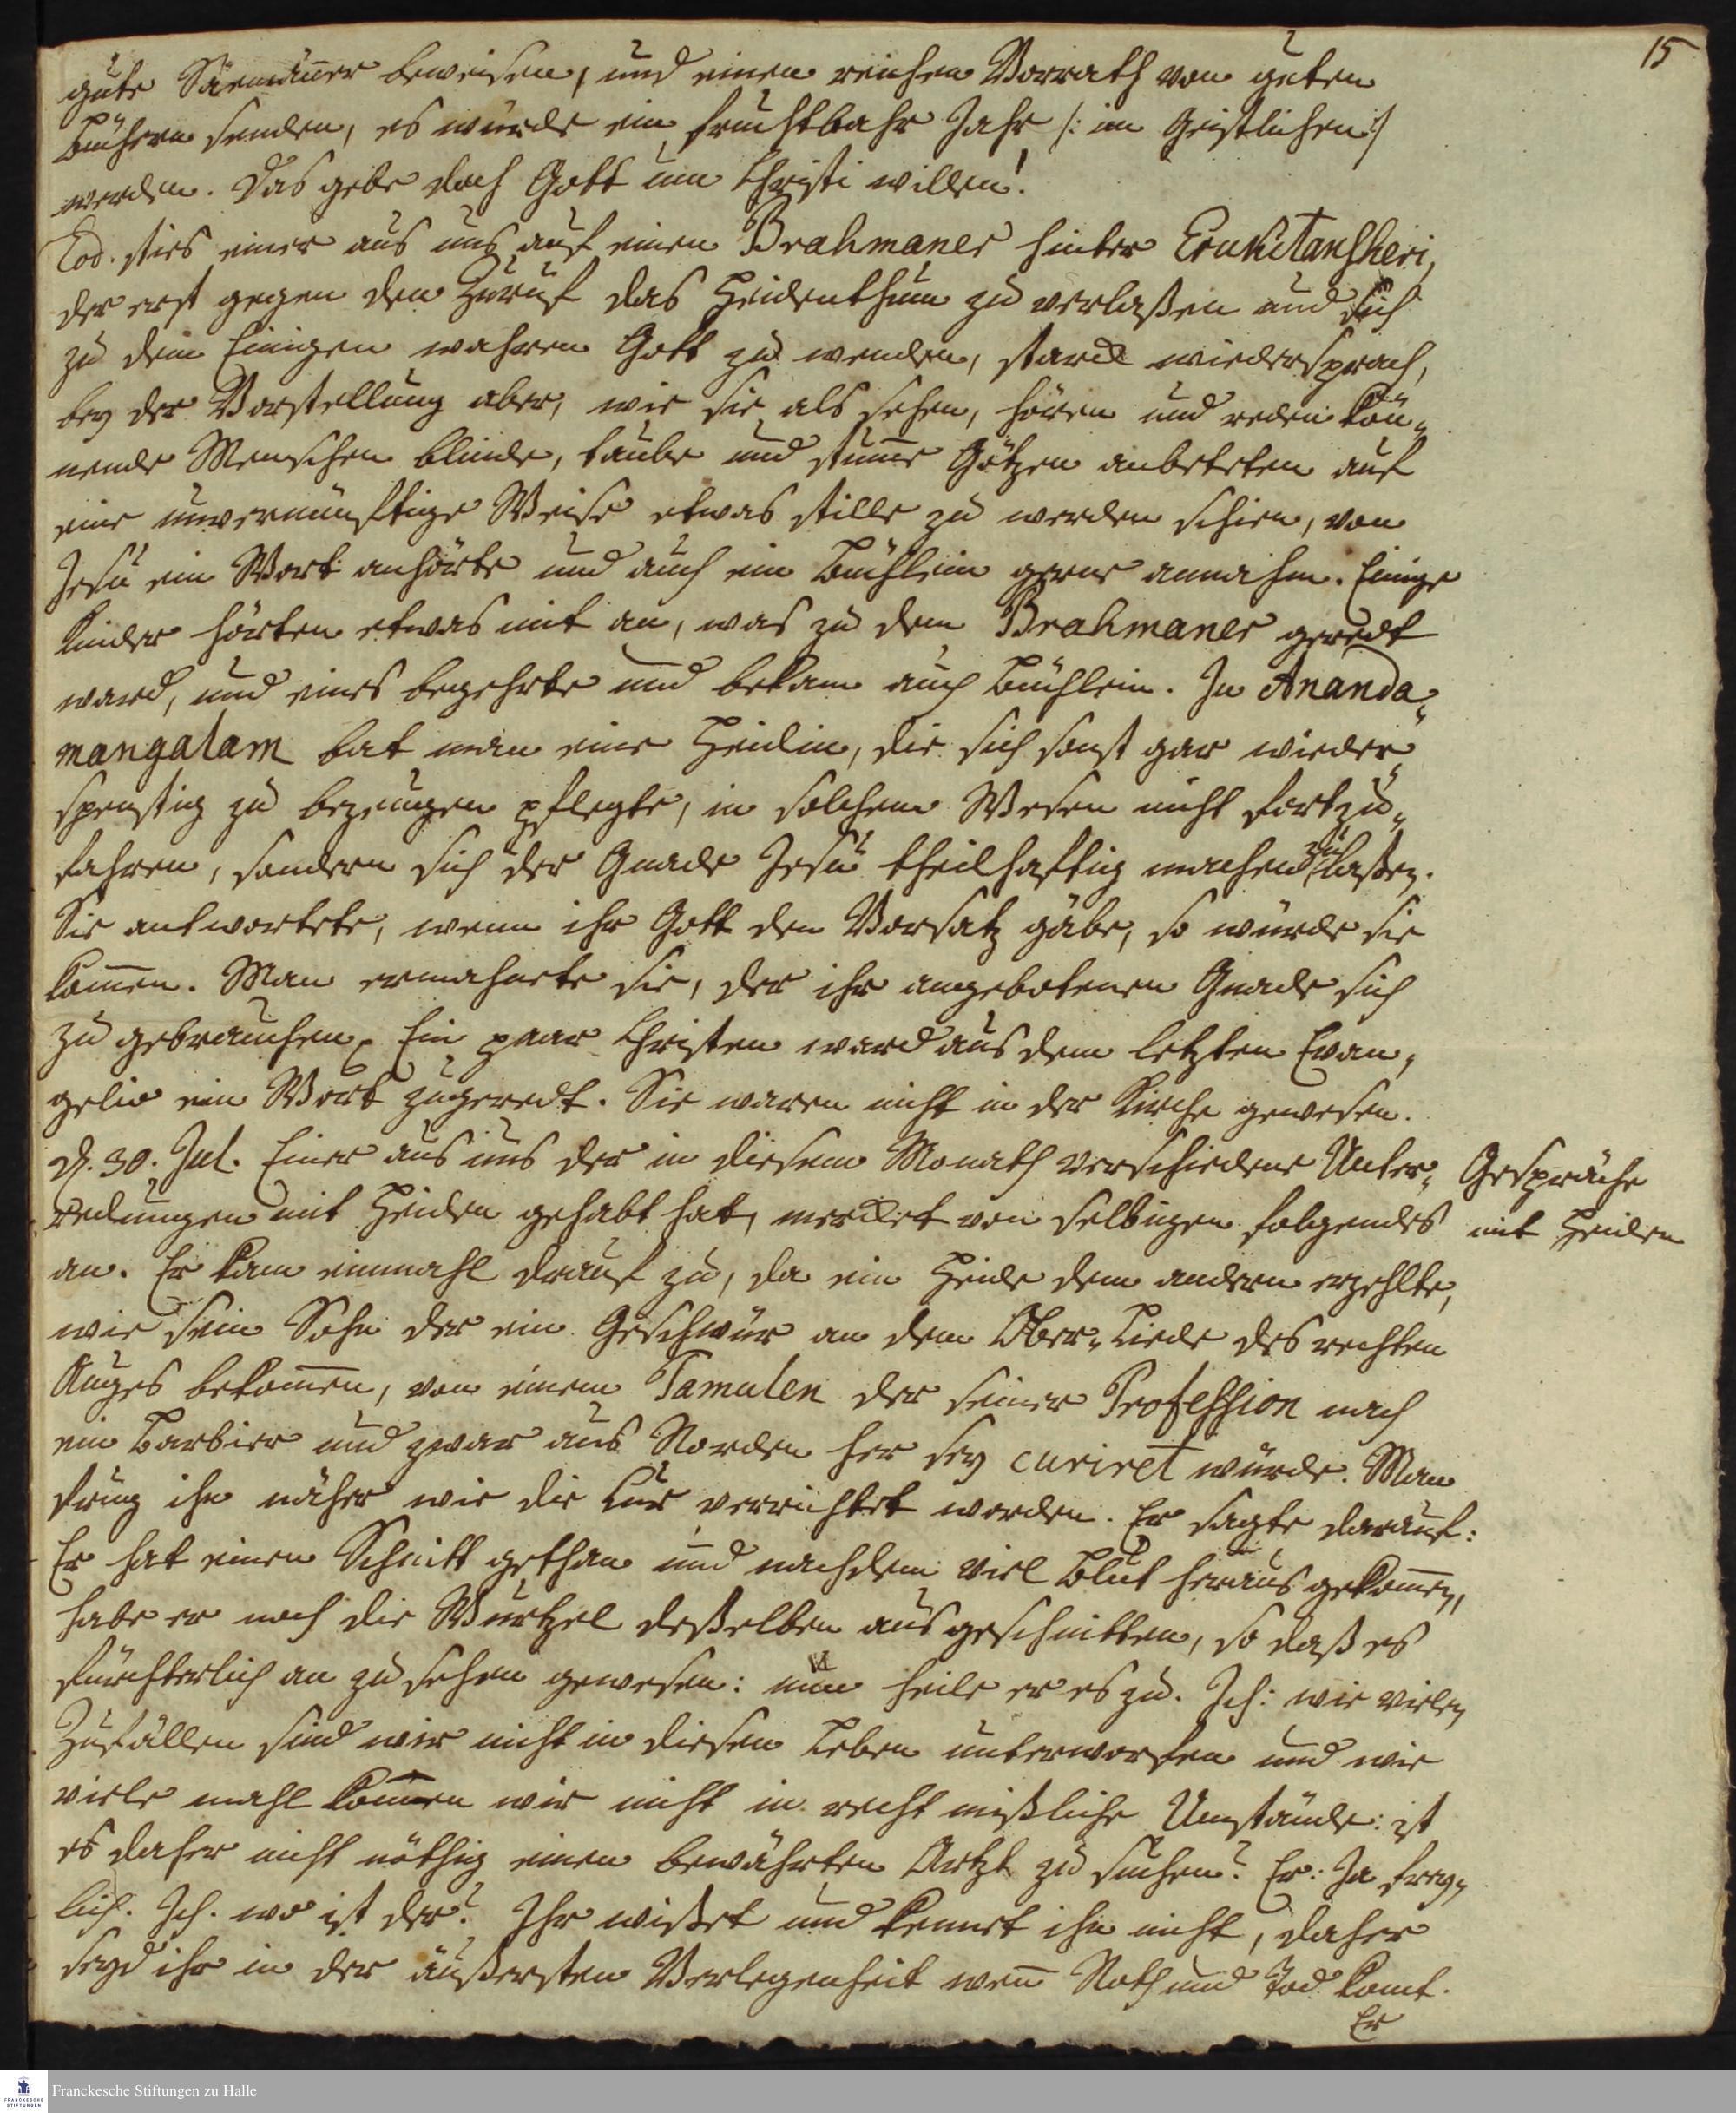 15
gute Säemäner beweisen, und einen reichen Vorrath von guten
Büchern senden, es würde ein fruchtbahr Jahr /: im Geistlichen :/
werden. Das gebe doch Gott um Christi willen!
Eod. sties einer aus uns auf einen Brahmaner hinter Erukitanscheri,
der erst gegen den Zuruf das Heidenthum zu verlaßen und sich
zu dem Einigen wahren Gott zu wenden, starck wiedersprach,
bey der Vorstellung aber, wie sie als sehen, hören und reden kön„
nende Menschen blinde, taube und stum̄e Götzen anbeteten auf
eine unvernünftige Weise etwas stille zu werden schien, von
Jesu ein Wort anhörte und auch ein Büchlein gerne annahm. Einige
Kinder hörten etwas mit an, was zu dem Brahmaner geredt
ward, und eines begehrte und bekam auch Büchlein. In Ananda„
mangalam bat man eine Heidin, die sich sonst gar wieder„
spenstig zu bezeugen pflegte, in solchem Wesen nicht fortzu„
fahren, sondern sich der Gnade Jesu theilhaftig machen zu laßen.
Sie antwortete, wenn ihr Gott den Vorsatz gäbe, so würde sie
kom̄en. Man ermahnete sie, der ihr angebotenen Gnade sich
zu gebrauchen. Ein paar Christen ward aus dem letzten Evan„
gelio ein Wort zugeredt. Sie waren nicht in der Kirche gewesen.
d. 30. Jul. Einer aus uns der in diesem Monath verschiedene Unter„
redungen mit Heiden gehabt hat, mercket von selbigen folgendes
Gespräche
mit Heiden
an. Er kam einmahl drauf zu, da ein Heide dem andern erzehlte,
wie sein Sohn der ein Geschwür an dem Ober„Liede des rechten
Auges bekom̄en, von einem Tamulen der seiner Profession nach
ein Barbier und zwar aus Norden her sey curiret würde. Man
frug ihn näher wie die Cur verrichtet worden. Er sagte darauf:
Er hat einen Schnitt gethan und nachdem viel Blut heraus gekom̄en,
habe er noch die Wurtzel deßelben ausgeschnitten, so daß es
fürchterlich an zu sehen gewesen: nun heile er es zu. Ich: wie vielen
Zufällen sind wir nicht in diesen Leben unterworfen und wie
viele mahl kom̄en wir nicht in recht mißliche Umstände: ist
es daher nicht nöthig einen bewährten Artzt zu suchen? Er: Ja frey„
lich. Ich. wo ist der? Ihr wißet und kennet ihn nicht, daher
seyd ihr in der äußersten Verlegenheit wen̄ Noth und Tod komt.
Er
Franckesche Stiftungen zu Halle
FRANCKESCHE
STIFTUNGEN